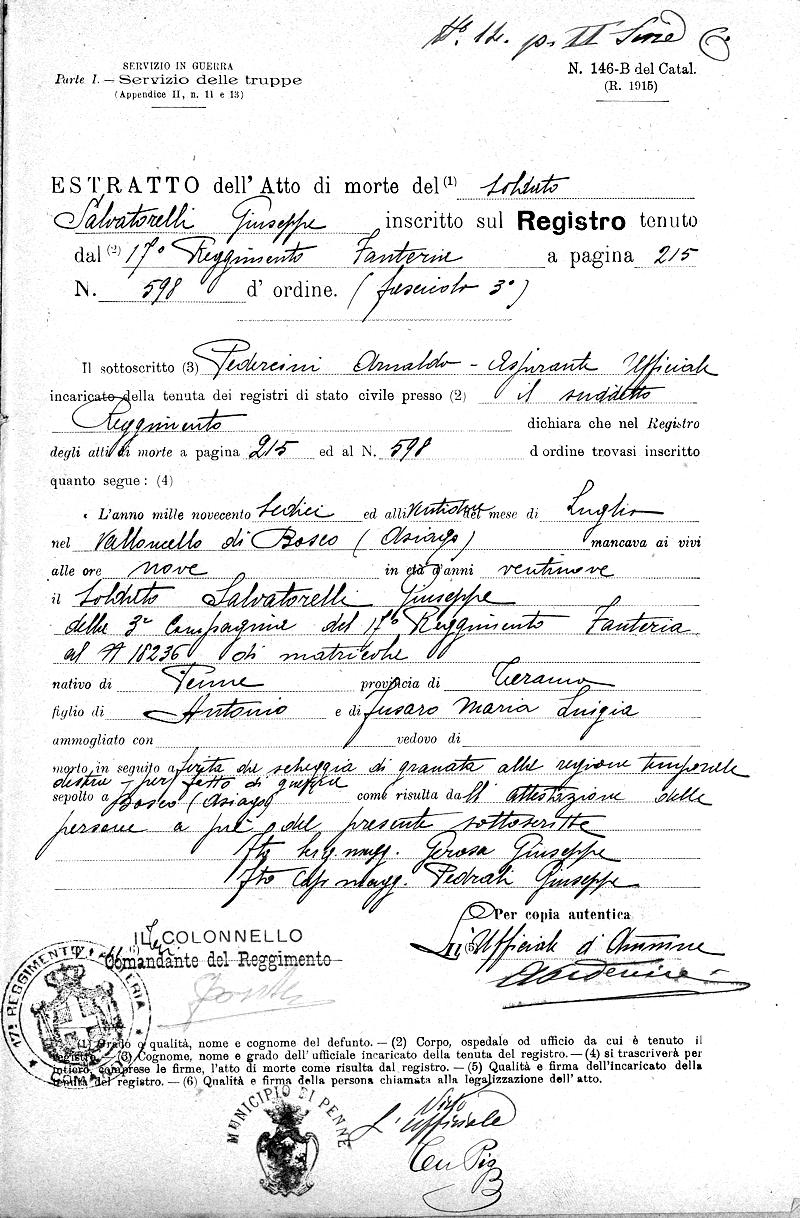 N.º 12. p. II Serie C
SERVIZIO IN GUERRA
Parte I. — Servizio delle truppe
(Appendice II, n. 11 e 13)
N. 146-B del Catal.
(R. 1915)
ESTRATTO dell' Atto di morte del (1) soldato
Salvatorelli Giuseppe inscritto sul Registro tenuto
dal (2) 17º Reggimento Fanteria a pagina 215
N. 598 d' ordine. (fascicolo 3º)
Il sottoscritto (3) Pedercini Arnaldo - Aspirante Ufficiale
incaricato della tenuta dei registri di stato civile presso (2) il suddetto
Reggimento dichiara che nel Registro
degli atti di morte a pagina 215 ed al N. 598 d ordine trovasi inscritto
quanto segue: (4)
« L'anno mille novecento sedici ed alli ventidue del mese di Luglio
nel Valloncello di Bosco (Asiago) mancava ai vivi
alle ore nove in età d'anni ventinove
il Soldato Salvatorelli Giuseppe
della 3ª Compagnia del 17º Reggimento Fanteria
al Nº 18236 di matricola
nativo di Penne provincia di Teramo
figlio di Antonio e di Fusaro Maria Luigia
ammogliato con vedovo di
morto in seguito a ferita da scheggia di granata alla regione temporale
destra - per fatto di guerra
sepolto a Bosco (Asiago) come risulta dall' attestazione delle
persone a piè del presente sottoscritte
fto Serg. magg. Gerosa Giuseppe
fto Cap. magg. Pedrali Giuseppe
Per copia autentica
(5) L'Ufficiale d'Ammne
IL COLONNELLO
Comandante del Reggimento
17º REGGIMENTO FANTERIA
COMANDO
(1) Grado o qualità, nome e cognome del defunto. — (2) Corpo, ospedale od ufficio da cui è tenuto il
registro. — (3) Cognome, nome e grado dell' ufficiale incaricato della tenuta del registro. — (4) si trascriverà per
intiero, comprese le firme, l'atto di morte come risulta dal registro. — (5) Qualità e firma dell'incaricato della
tenuta del registro. — (6) Qualità e firma della persona chiamata alla legalizzazione dell' atto.
MUNICIPIO DI PENNE
Visto
L'Ufficiale